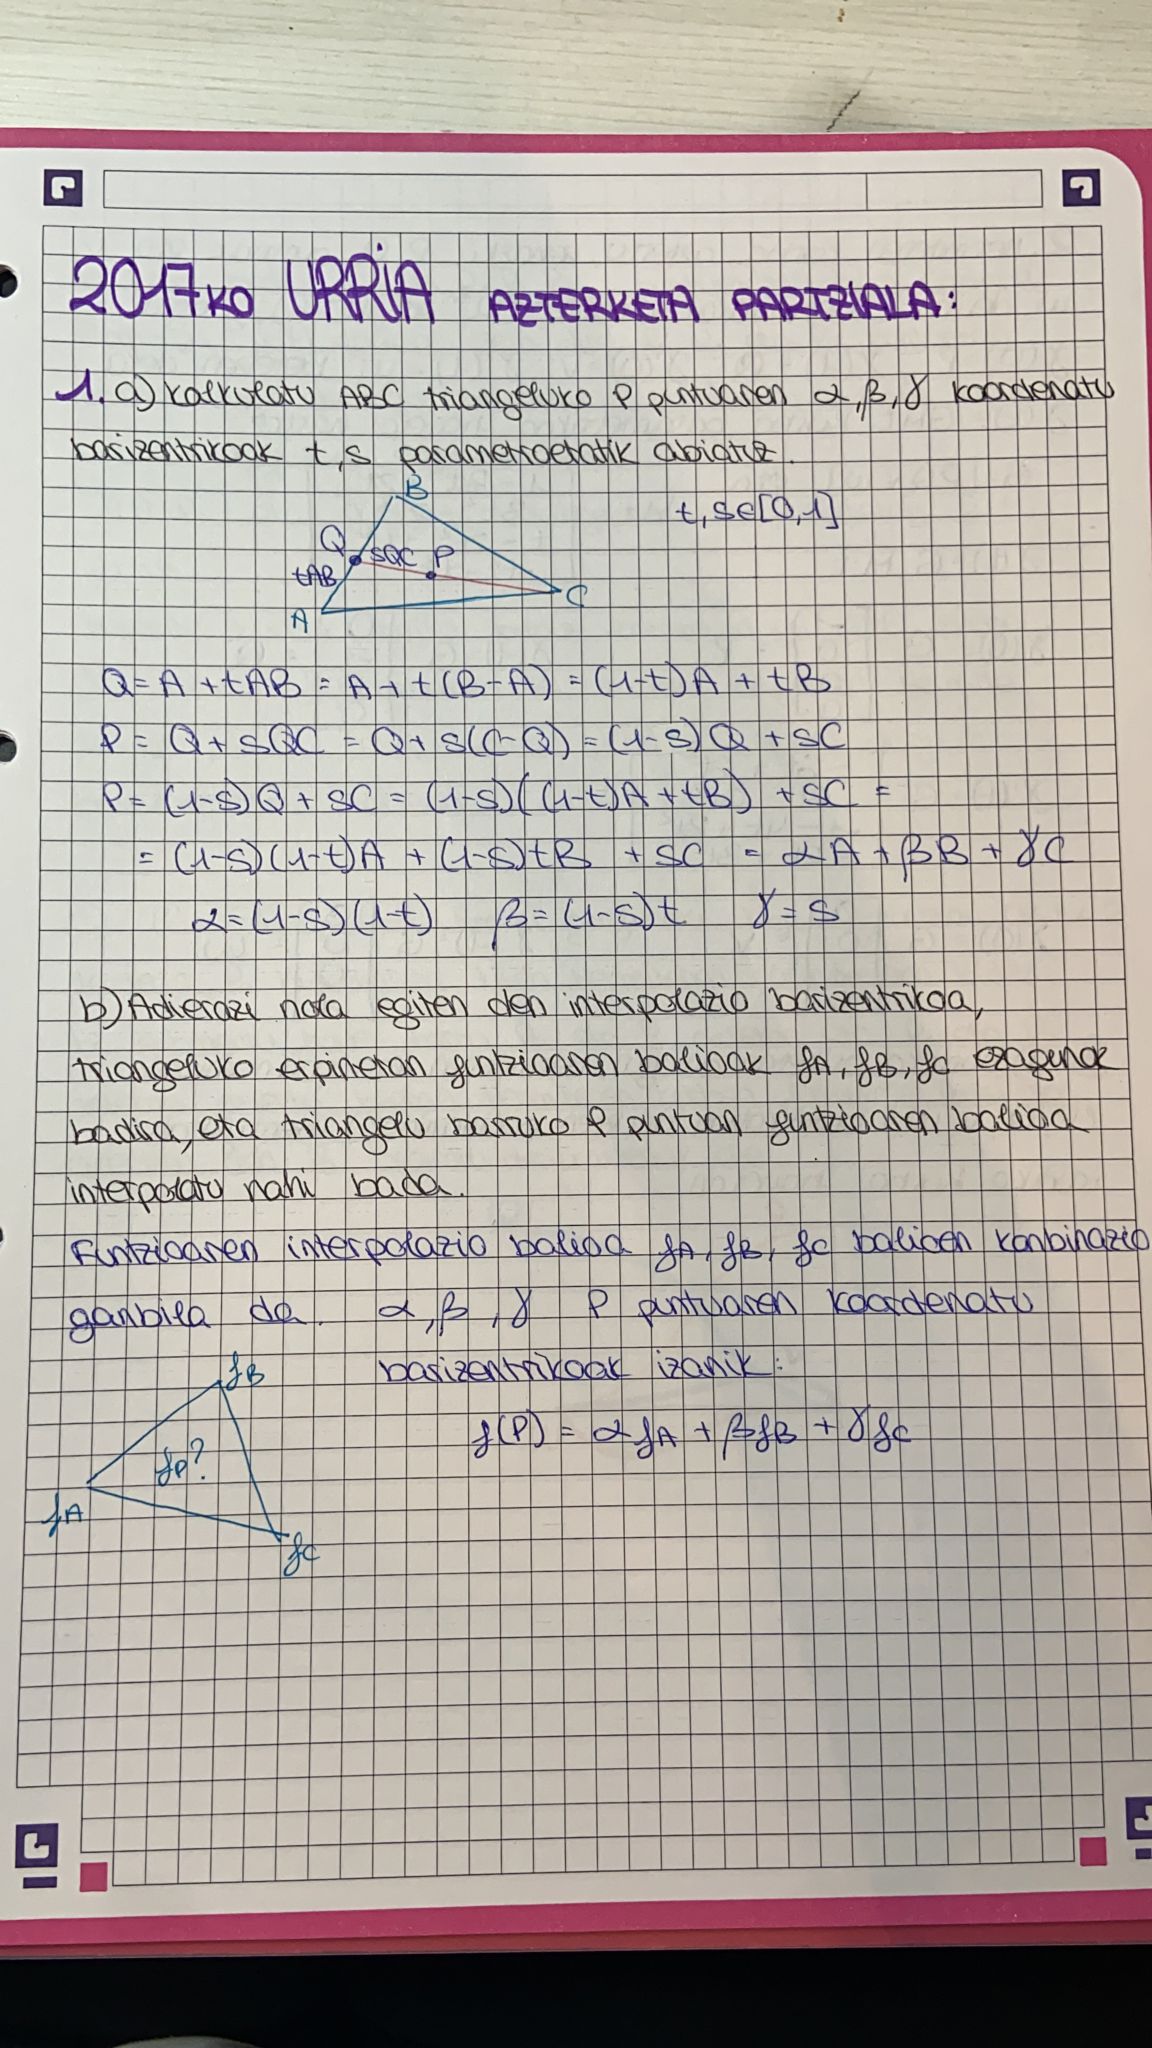 2017ko URRIA AZTERKETA PARTZIALA:
1. a) Kalkulatu ABC triangeluko P puntuaren α, β, γ koordenatu
barizentrikoak t, s parametroetatik abiatuz.
B
t, s∈[0,1]
Q
sQC
P
tAB
C
A
Q = A + tAB = A + t(B-A) = (1-t)A + tB
P = Q + sQC = Q + s(C-Q) = (1-s)Q + sC
P = (1-s)Q + sC = (1-s)((1-t)A + tB) + sC =
= (1-s)(1-t)A + (1-s)tB + sC = αA + βB + γC
α = (1-s)(1-t) β = (1-s)t γ = s
b) Adierazi nola egiten den interpolazio barizentrikoa,
triangeluko erpinetan funtzioaren balioak fA, fB, fC ezagunak
badira, eta triangelu barruko P puntuan funtzioaren balioa
interpolatu nahi bada.
Funtzioaren interpolazio balioa fA, fB, fC balioen konbinazio
ganbila da. α, β, γ P puntuaren koordenatu
barizentrikoak izanik:
fB
f(P) = αfA + βfB + γfC
fP?
fA
fC